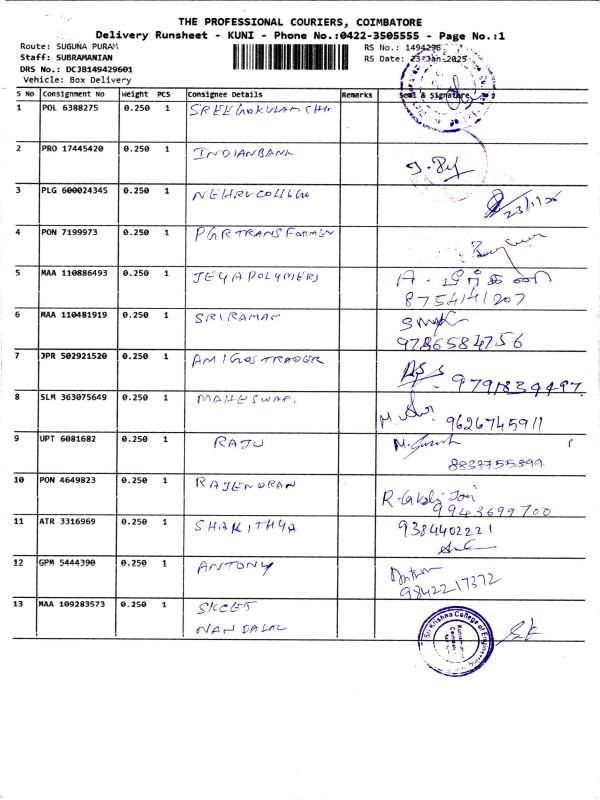 THE PROFESSIONAL COURIERS, COIMBATORE
Delivery Runsheet - KUNI - Phone No.:0422-3505555 - Page No.:1
Route: SUGUNA PURAM
RS No.: 1494296
Staff: SUBRAMANIAN
RS Date: 23-Jan-2025
DRS No.: DCJB149429601
Vehicle: Box Delivery
S No Consignment No Weight PCS Consignee Details Remarks Seal & Signature
1 POL 6388275 0.250 1 SREEGOKULAM CHH
2 PRO 17445420 0.250 1 INDIANBANK
3 PLG 600024345 0.250 1 NEHRUCOLLGGO
4 PON 7199973 0.250 1 PGRTRANSFORMEN
5 MAA 110886493 0.250 1 JEYAPOLYMERS
8754141207
6 MAA 110481919 0.250 1 SRIRAMAN
9786584756
7 JPR 502921520 0.250 1 AMIGOSTRADER
9791839497
8 SLM 363075649 0.250 1 MAHESWARI
9626745911
9 UPT 6081682 0.250 1 RAJU
8838755899
10 PON 4649823 0.250 1 RAJENDRAN
9943699700
11 ATR 3316969 0.250 1 SHAKITHYA 9384402221
12 GPM 5444390 0.250 1 ANTONY
9842217372
13 MAA 109283573 0.250 1 SKCET
NANDALAL
Sri Krishna College of Engineering